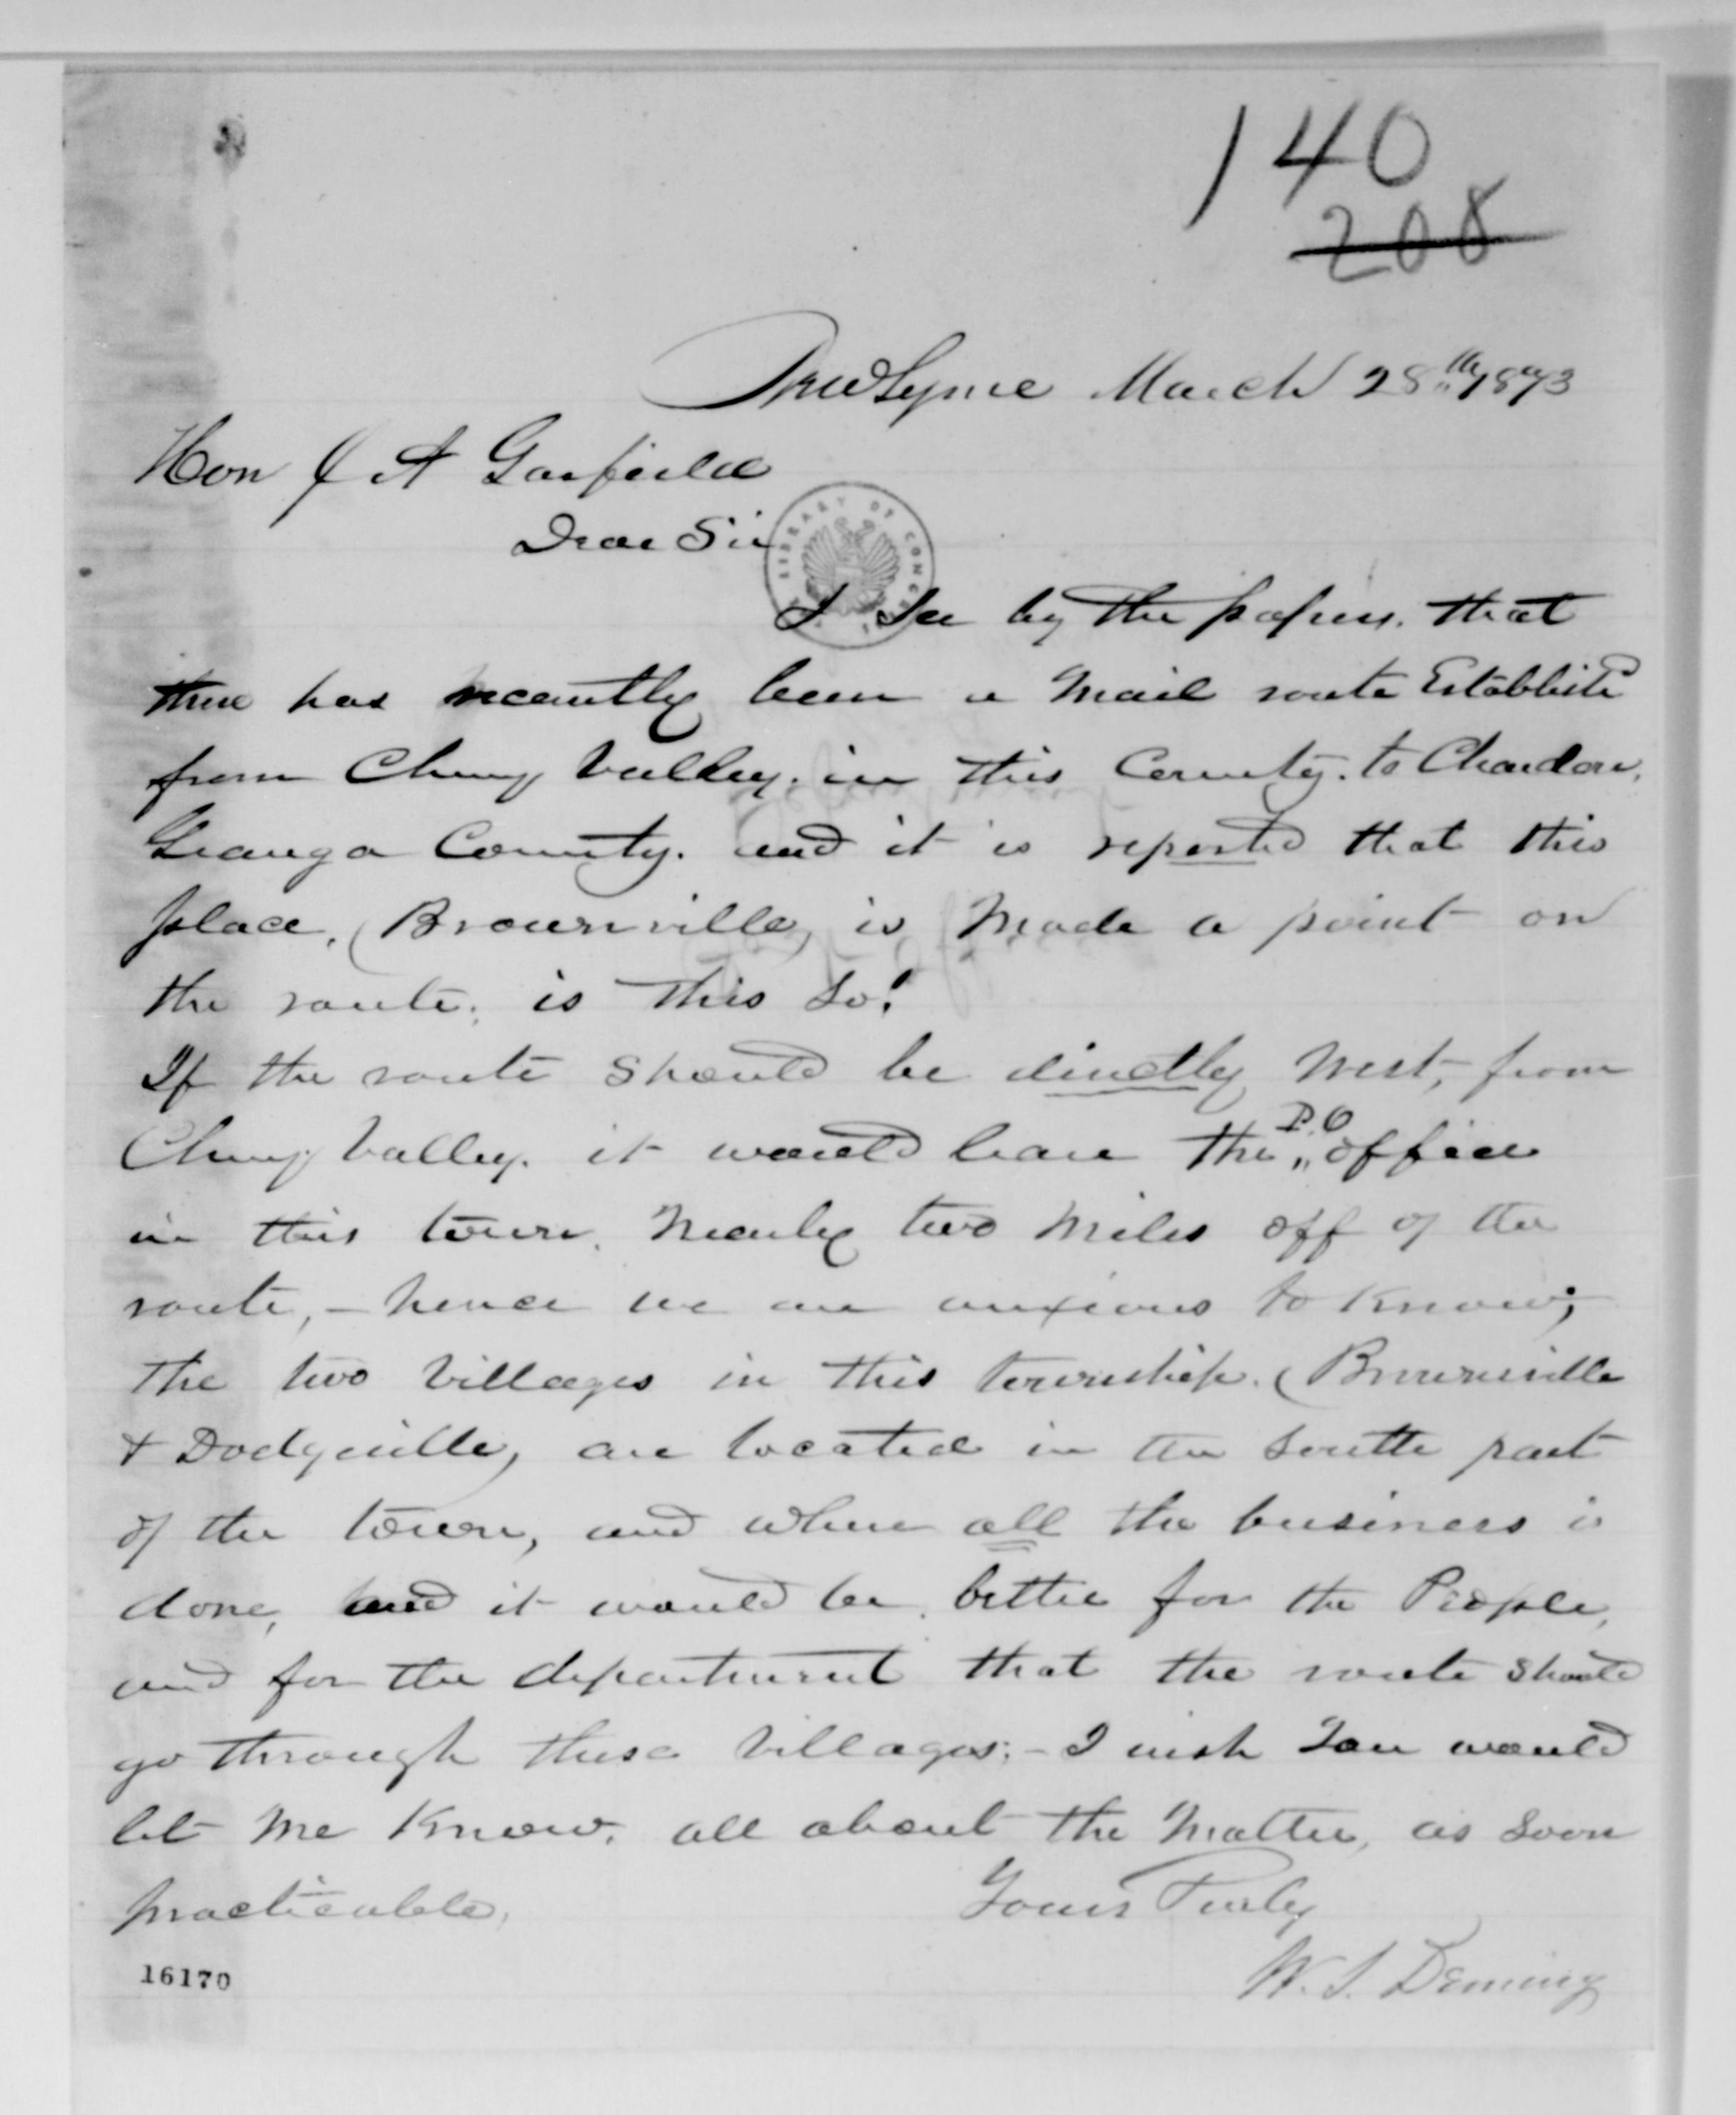 140
208
New Lyme March 28th 1873
Hon J A Garfield
Dear Sir
LIBRARY OF CONGRESS
I see by the papers. that
there has recently been a Mail route Establishd
from Cherry Valley. in this County. to Chardon,
Geauga County. and it is reported that this
place, (Brownville) is Made a point on
the route. is this so?
If the route should be directly West, from
Cherry Valley. it would leave the P.O office
in this town. Nearly two Miles off of the
route, - hence we are anxious to Know;
The two Villages in this township. (Brownville
& Dodgeville) are located in the South part
of the town, and where all the business is
done, and it would be better for the People,
and for the department that the route should
go through these Villages; - I wish You would
let Me Know. all about the Matter, as soon
practicable,
Yours Truly
W. S. Deming
16170